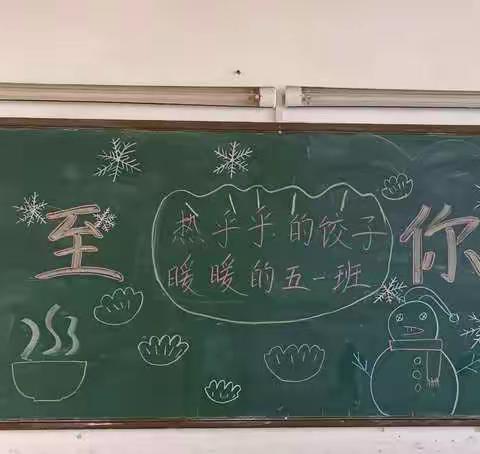 至
热乎乎的饺子
暖暖的五一班
你